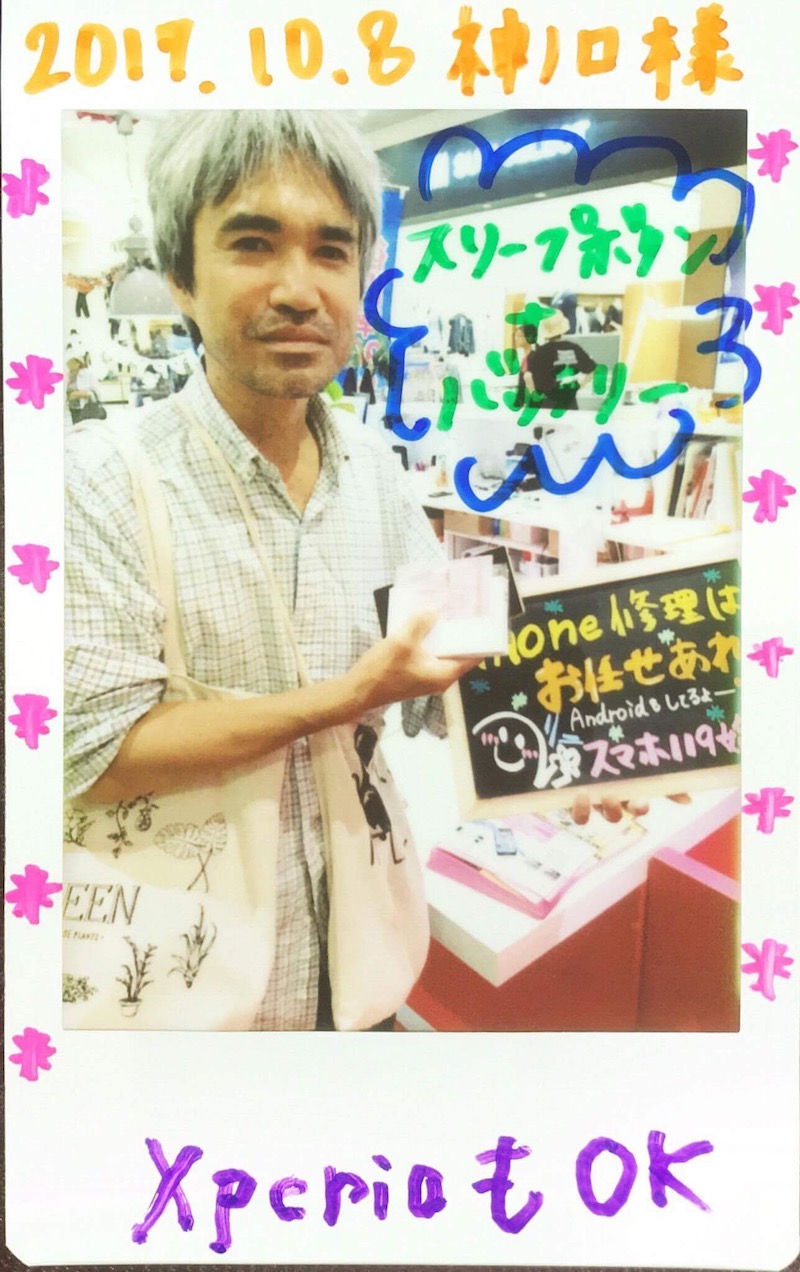 2017.10.8 神ノ口様
スリープボタン
+
バッテリー
iPhone修理は
お任せあれ
Androidもしてるよー
スマホ119
EEN
XperiaもOK